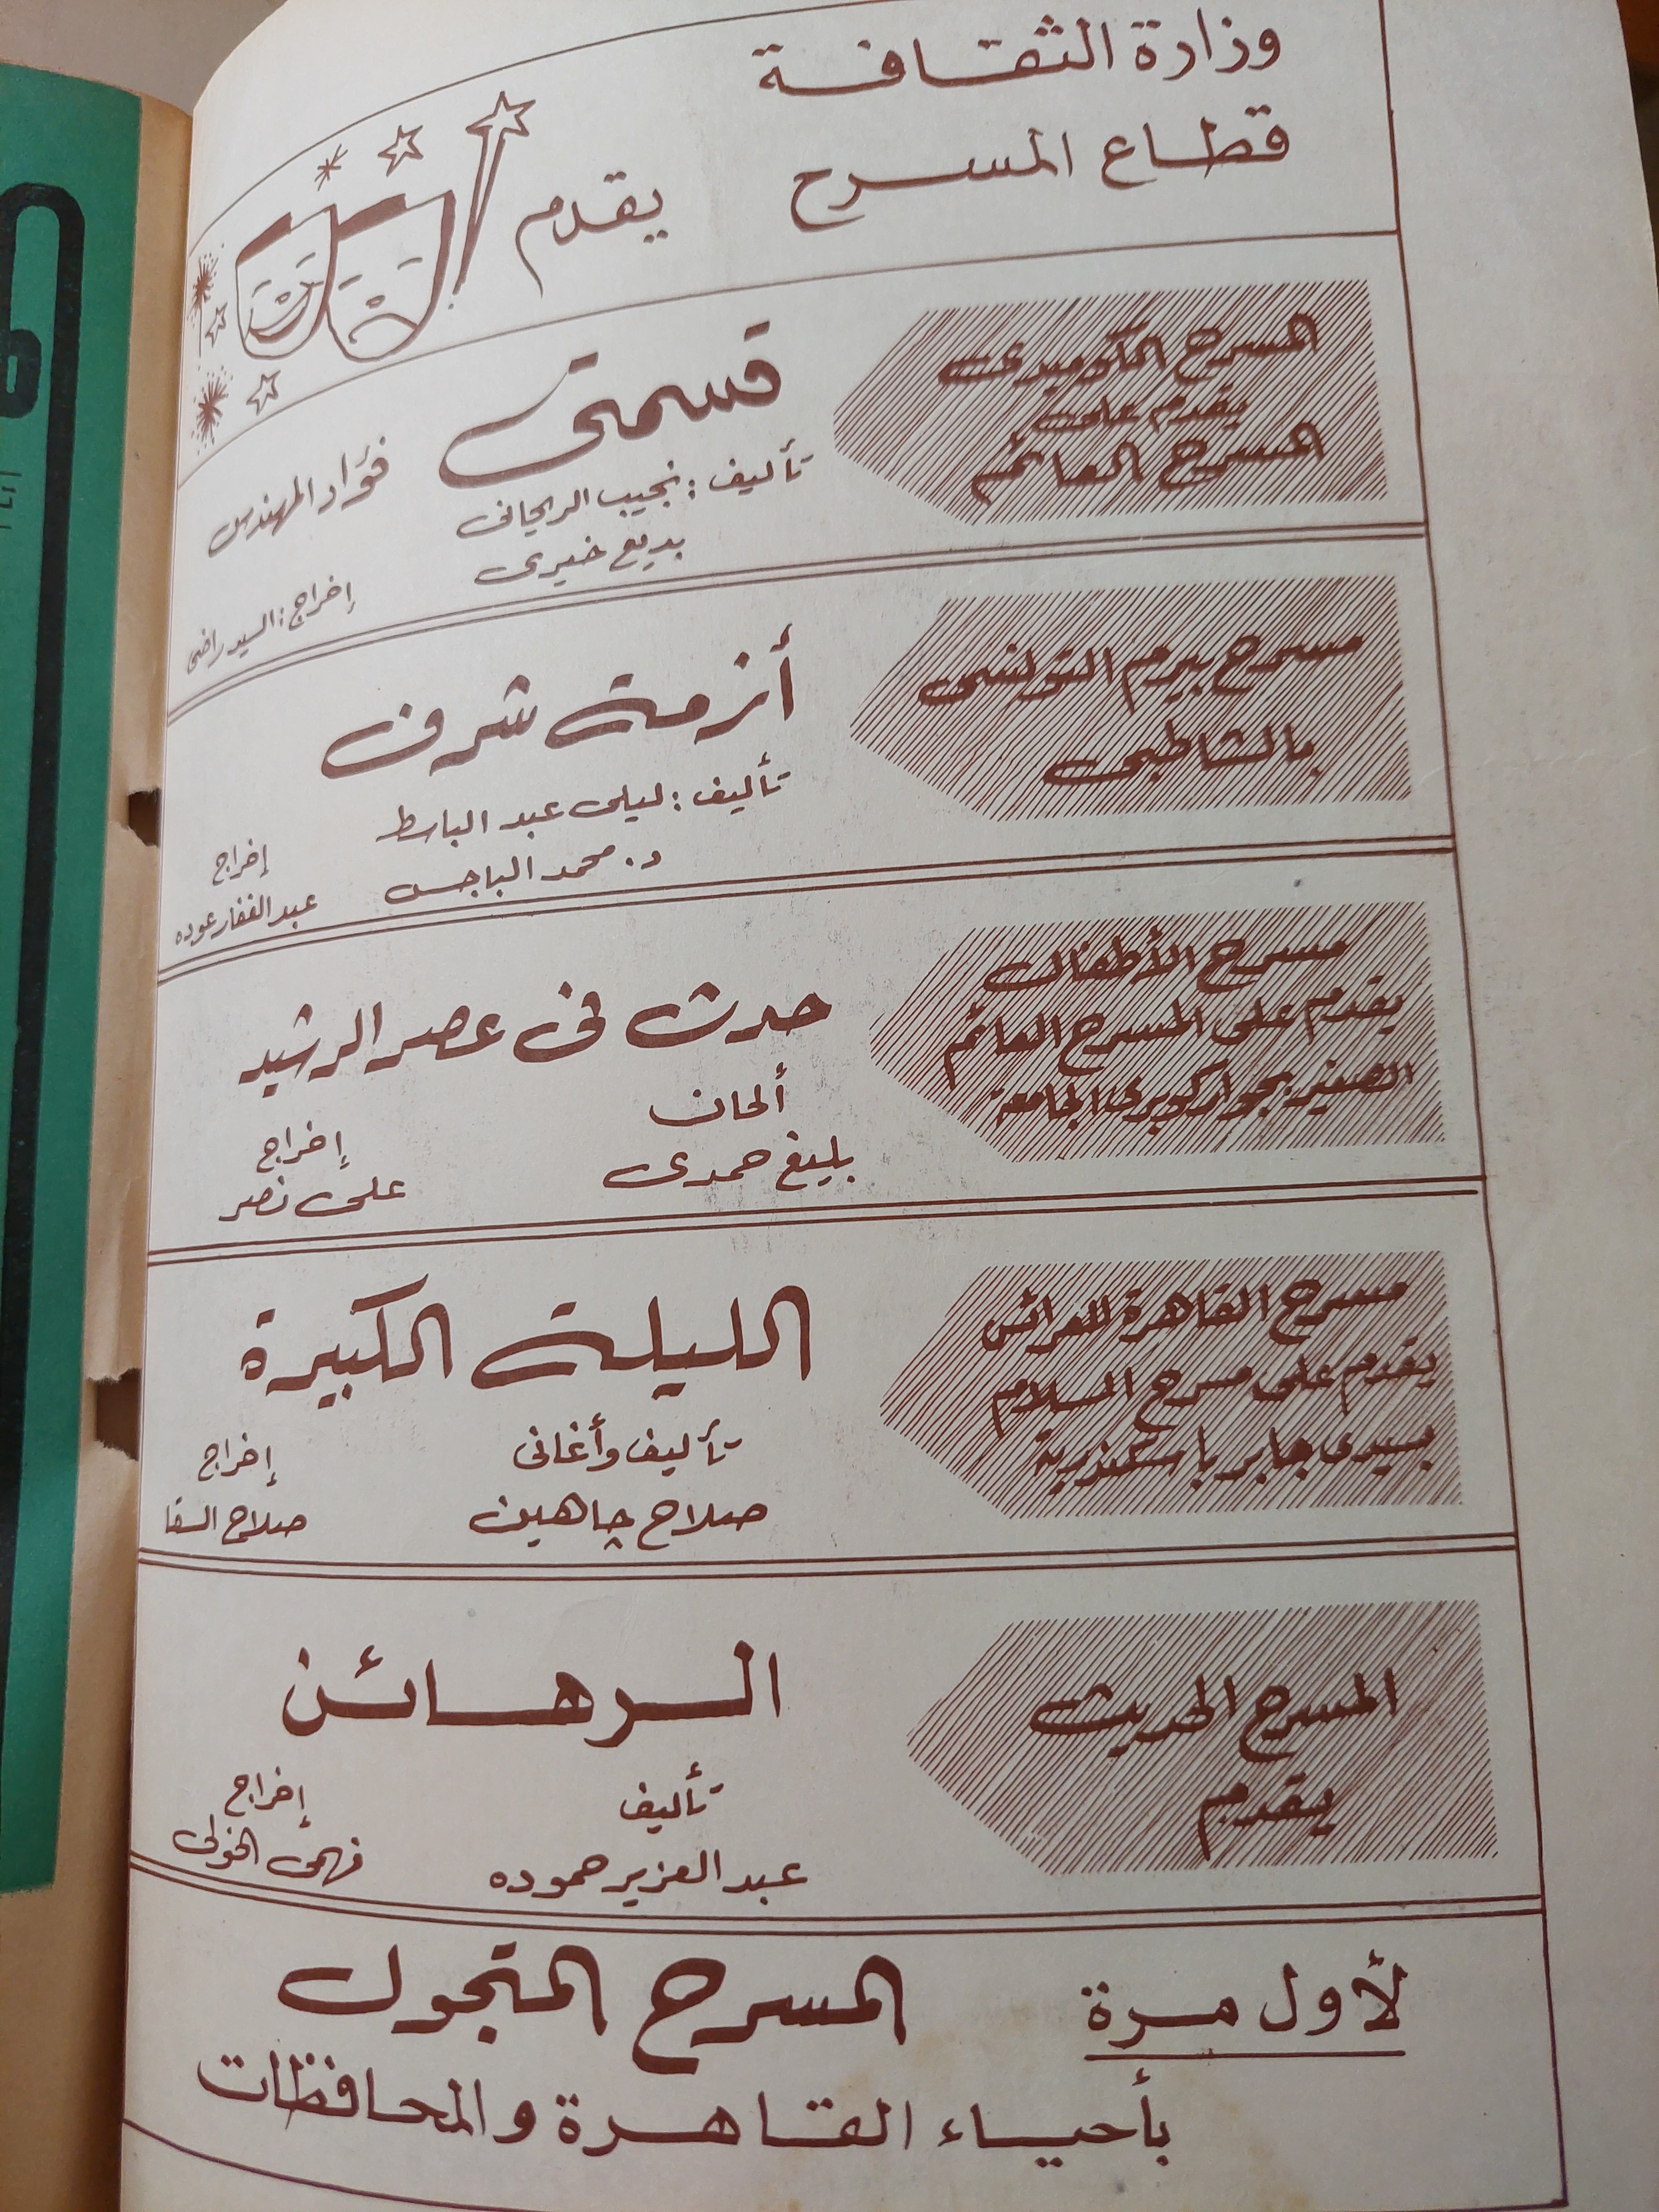 وزارة الثقافة
قطاع المسرح
يقدم
المسرح الكوميدى
يقدم على
المسرح العائم
قسمتى
تأليف : نجيب الريحانى
بديع خيرى
فؤاد المهندس
إخراج : السيد راضى
مسرح بيرم التونسى
بالشاطبى
أزمة شرف
تأليف : ليلى عبد الباسط
د. محمد الباجس
إخراج
عبد الغفار عوده
مسرح الأطفال
يقدم على المسرح العائم
الصغير بجوار كوبرى الجامعة
حدث فى عصر الرشيد
ألحان
بليغ حمدى
إخراج
على نصر
مسرح القاهرة للعرائس
يقدم على مسرح السلام
بسيدى جابر باسكندرية
الليلة الكبيرة
تأليف وأغانى
صلاح چاهين
إخراج
صلاح السقا
المسرح الحديث
يقدم
الرهائن
تأليف
عبد العزيز حموده
إخراج
فهمى الخولى
لأول مرة
المسرح المتجول
بأحياء القاهرة والمحافظات